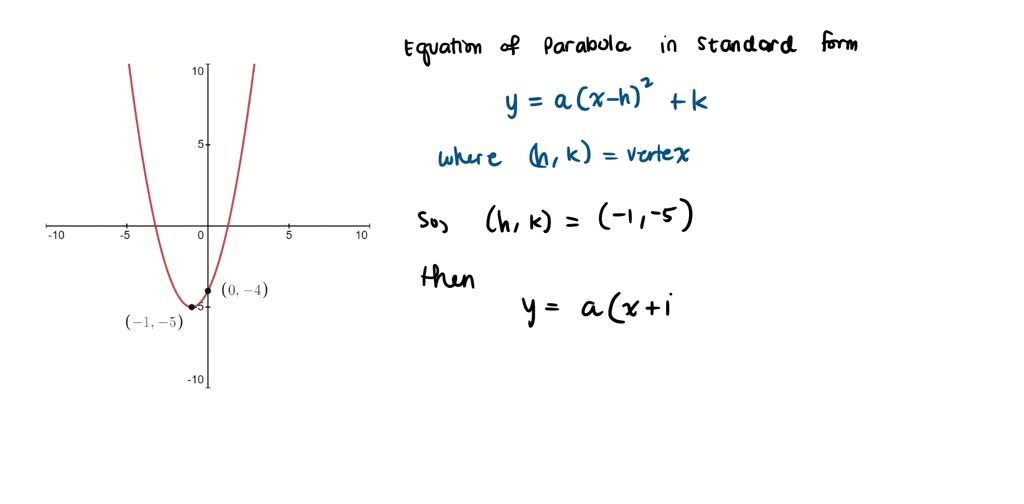 Equation of Parabola in standard form
y = a(x-h)² + k
where (h, k) = vertex
So, (h, k) = (-1, -5)
then
y = a(x+i
10
5
-10 -5 0 5 10
(0, −4)
-5
(−1, −5)
-10